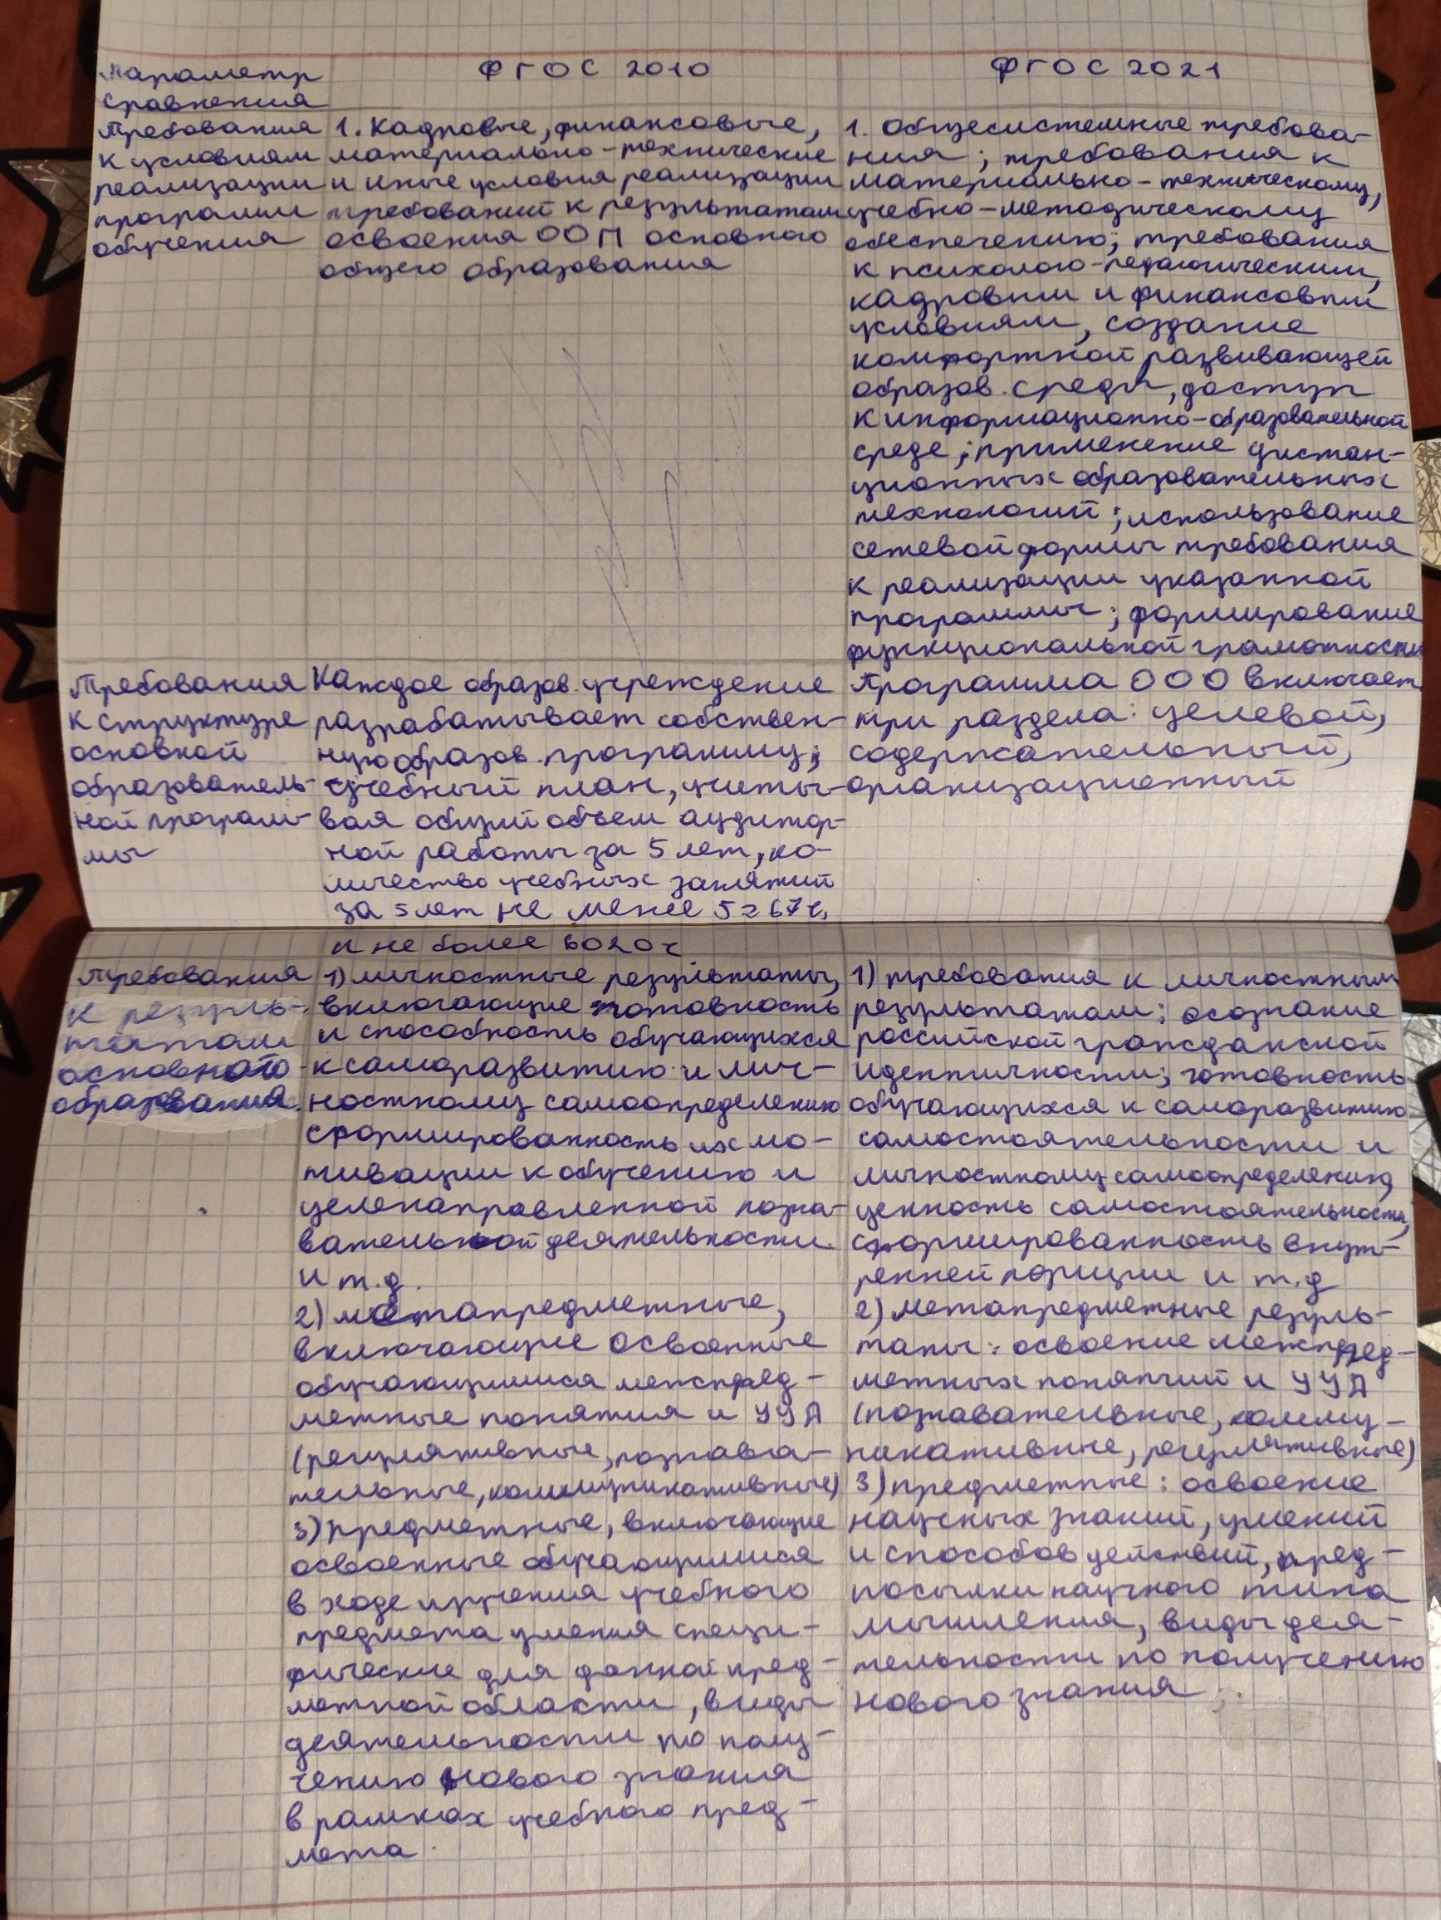 Параметр
сравнения
ФГОС 2010
ФГОС 2021
Требования
к условиям
реализации
программ
обучения
1. Кадровые, финансовые,
материально-технические
и иные условия реализации
требований к результатам
освоения ООП основного
общего образования
1. Общесистемные требова-
ния; требования к
материально-техническому,
учебно-методическому
обеспечению; требования
к психолого-педагогическим,
кадровым и финансовым
условиям, создание
комфортной развивающей
образов. среды, доступ
к информационно-образовательной
среде; применение дистан-
ционных образовательных
технологий; использование
сетевой формы требования
к реализации указанной
программы; формирование
функциональной грамотности
Требования
к структуре
основной
образователь-
ной програм-
мы
Каждое образов. учреждение
разрабатывает собствен-
ную образов. программу;
учебный план, учиты-
вая общий объем аудитор-
ной работы за 5 лет, ко-
личество учебных занятий
за 5 лет не менее 5267ч,
и не более 6020ч
Программа ООО включает
три раздела: целевой,
содержательный,
организационный
Требования
к резуль-
татам
основного
образования.
1) личностные результаты,
включающие готовность
и способность обучающихся
к саморазвитию и лич-
ностному самоопределению
сформированность их мо-
тивации к обучению и
целенаправленной позна-
вательной деятельности
и т.д.
2) метапредметные,
включающие освоенные
обучающимися межпред-
метные понятия и УУД
(регулятивные, познава-
тельные, коммуникативные)
3) предметные, включающие
освоенные обучающимися
в ходе изучения учебного
предмета умения специ-
фические для данной пред-
метной области, виды
деятельности по полу-
чению нового знания
в рамках учебного пред-
мета.
1) требования к личностным
результатам; осознание
российской гражданской
идентичности; готовность
обучающихся к саморазвитию
самостоятельности и
личностному самоопределению,
ценность самостоятельности,
сформированность внут-
ренней позиции и т.д
2) метапредметные резуль-
таты: освоение межпред-
метных понятий и УУД
(познавательные, комму-
никативные, регулятивные)
3) предметные: освоение
научных знаний, умений
и способов действий, пред-
посылки научного типа
мышления, виды дея-
тельности по получению
нового знания